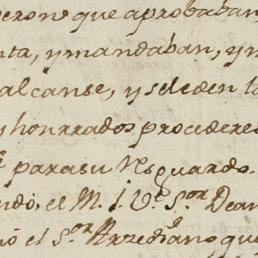 eron que aprobaban
nta, y mandaban, y m
alcanse, y se le den la
y honrrados procedere
para su resguardo.
ndó, el M. I. Ve. S.or Dean
ó el S.or Arzediano que